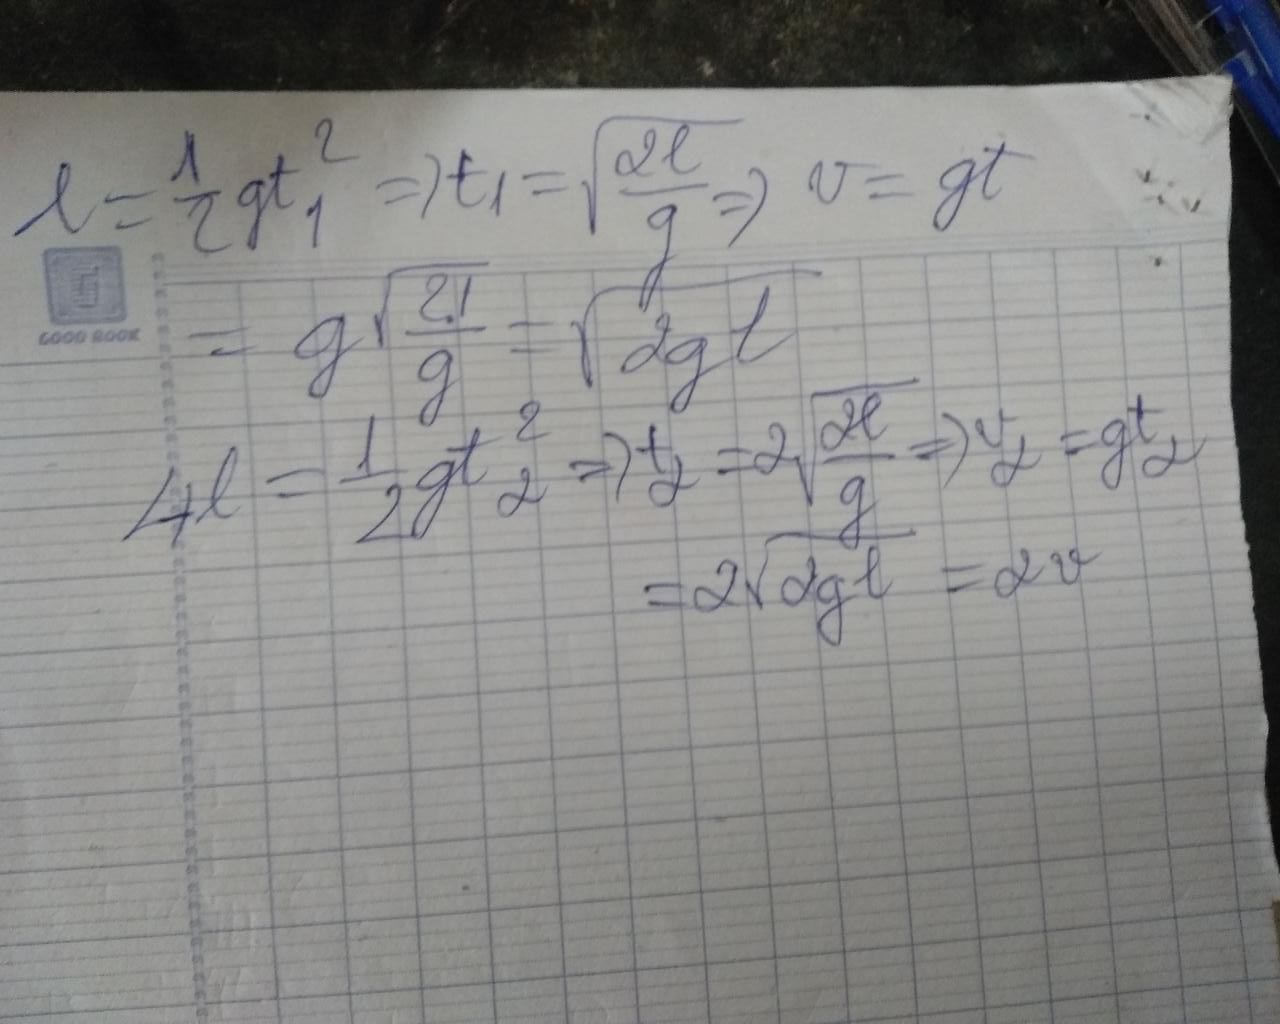 l = 1/2 gt₁² => t₁ = √(2l/g) => v = gt
GOOD BOOK
= g√(2.1/g) = √(2gl)
4l = 1/2 gt₂² => t₂ = 2√(2l/g) => v₂ = gt₂
= 2√(2gl) = 2v